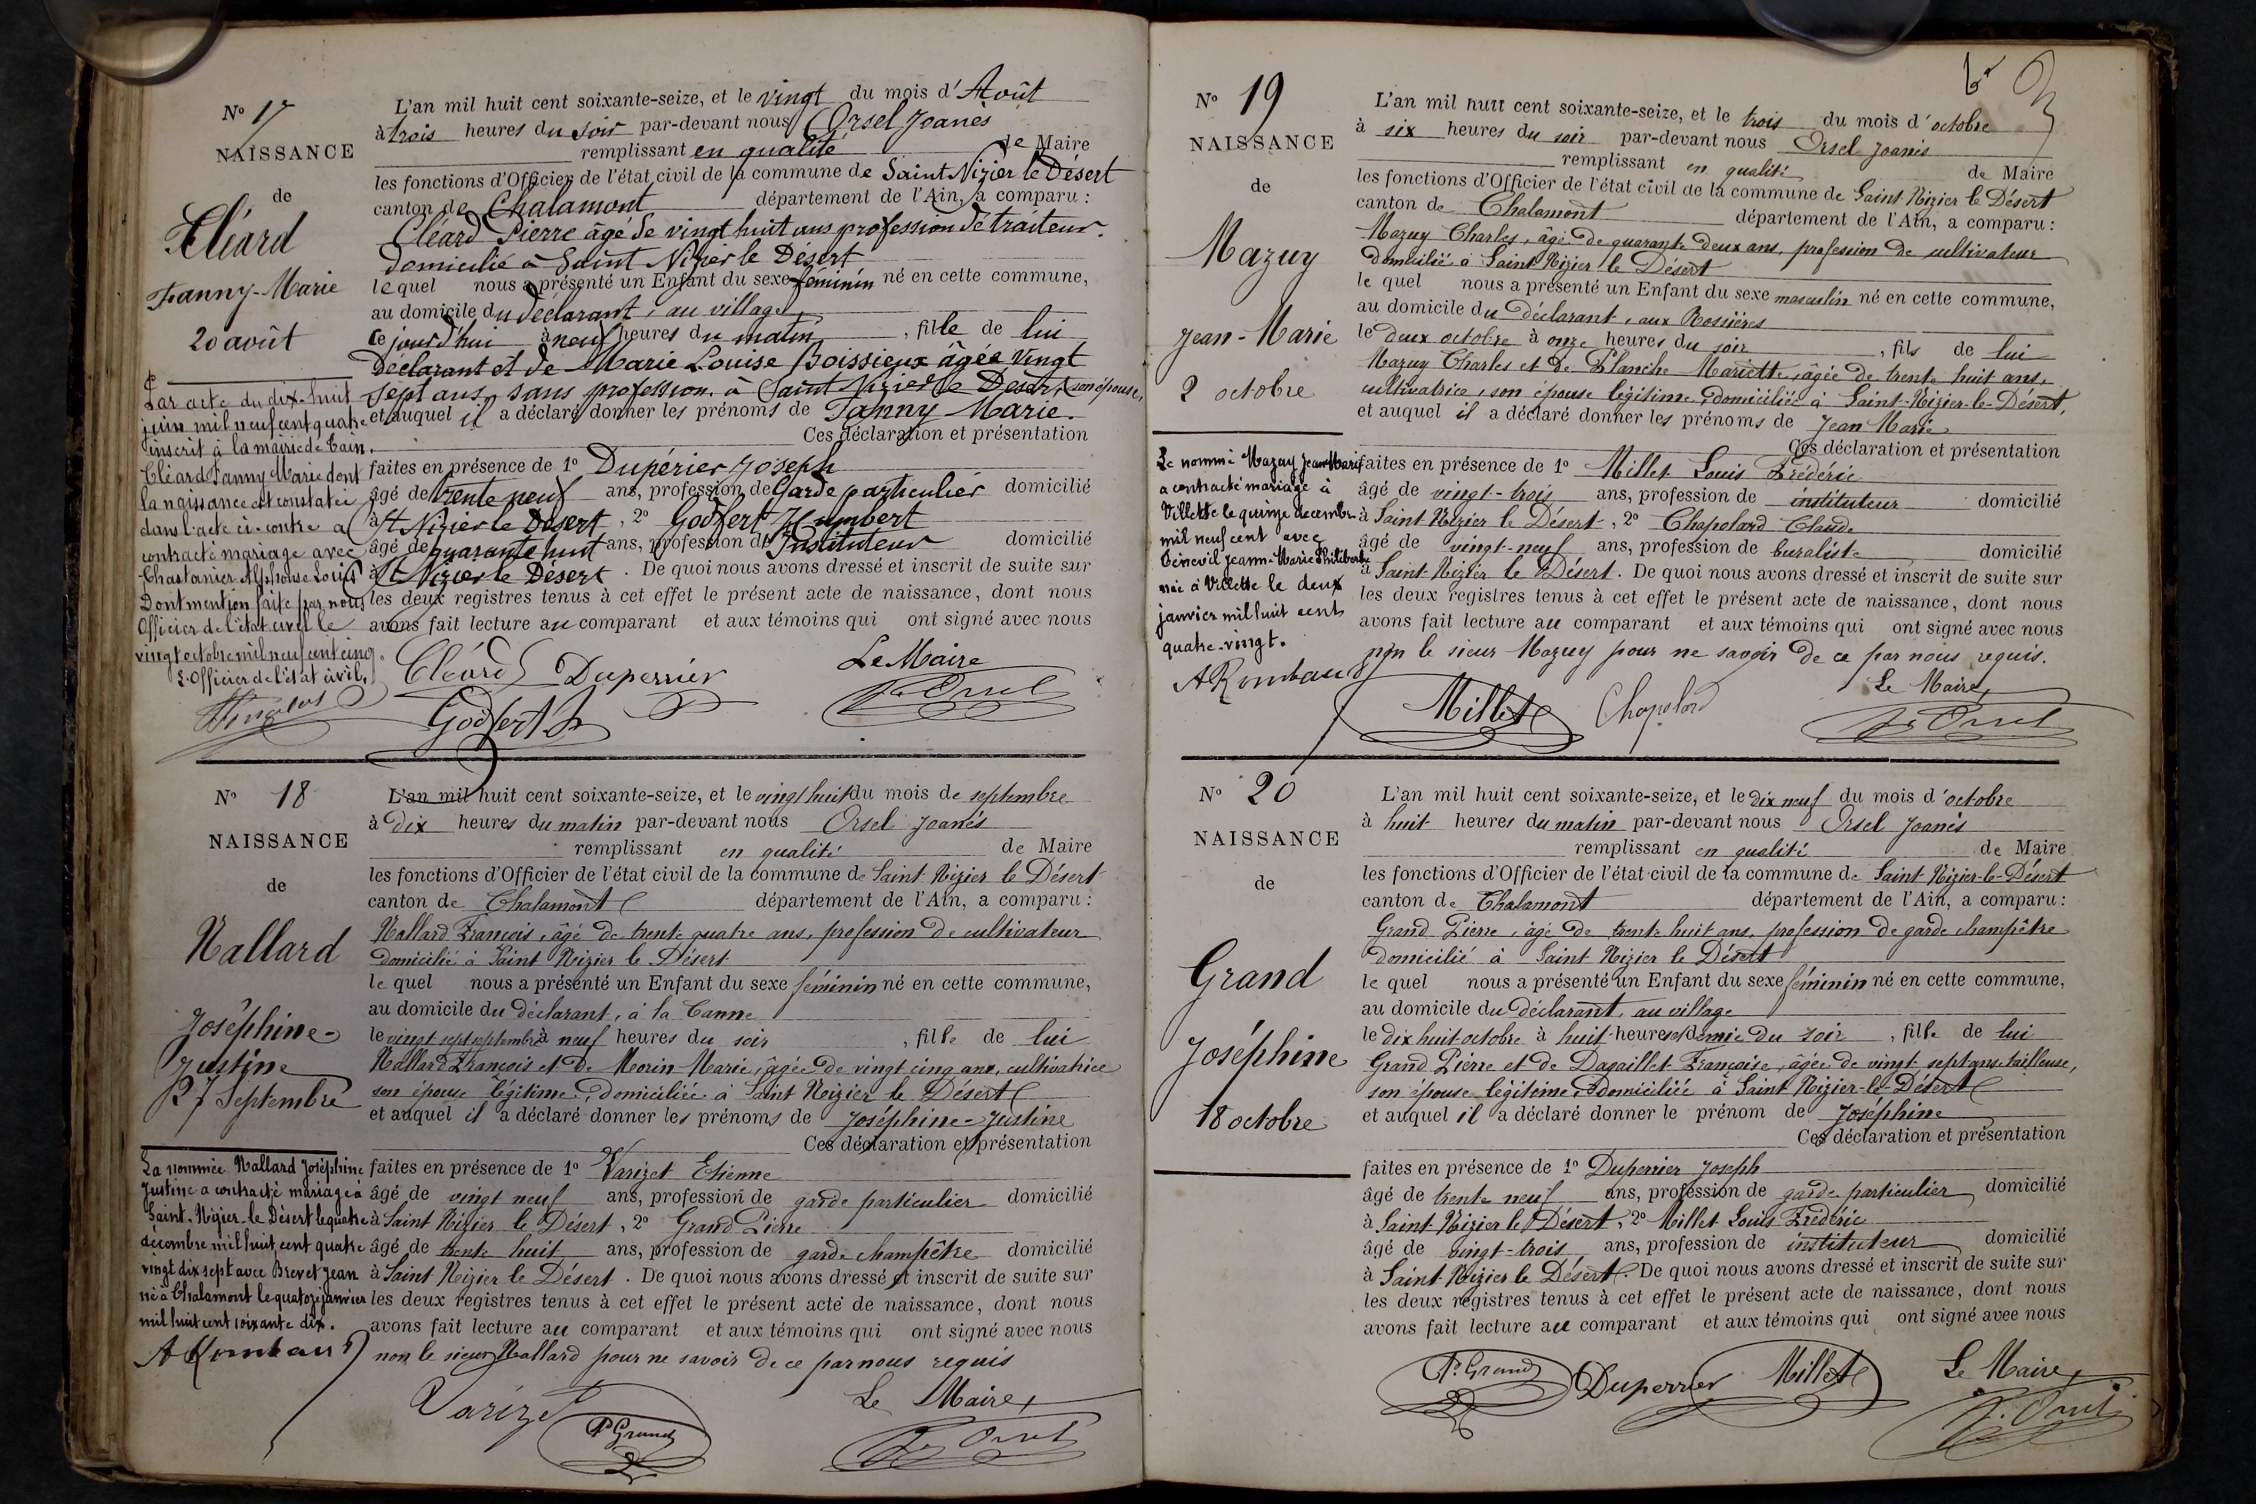 N° 17
NAISSANCE
de
Cléard
Fanny-Marie
20 août
Par acte du dix-huit
juin mil neuf cent quatre
inscrit à la mairie de Tain.
Cléard Fanny Marie dont
la naissance est constatée
dans l'acte ci-contre a
contracté mariage avec
Chastanier Alphonse Louis
Dont mention faite par nous
Officier de l'état civil le
vingt octobre mil neuf cent cinq.
L'Officier de l'état civil,
L'an mil huit cent soixante-seize, et le vingt du mois d'Août
à trois heures du soir par-devant nous Orsel Joanès
remplissant en qualité de Maire
les fonctions d'Officier de l'état civil de la commune de Saint Nizier le Désert
canton de Chalamont département de l'Ain, a comparu :
Cléard Pierre âgé de vingt huit ans profession de traiteur.
domicilié à Saint Nizier le Désert
lequel nous a présenté un Enfant du sexe féminin né en cette commune,
au domicile du déclarant, au village
ce jourd'hui à neuf heures du matin, fille de lui
déclarant et de Marie Louise Boissieux âgée vingt
sept ans, sans profession à Saint Nizier le Désert, son épouse,
et auquel il a déclaré donner les prénoms de Fanny Marie.
Ces déclaration et présentation
faites en présence de 1° Dupérier Joseph
âgé de trente neuf ans, profession de Garde particulier domicilié
à St Nizier le Désert, 2° Godfert Humbert
âgé de quarante huit ans, profession d' Instituteur domicilié
à St Nizier le Désert. De quoi nous avons dressé et inscrit de suite sur
les deux registres tenus à cet effet le présent acte de naissance, dont nous
avons fait lecture au comparant et aux témoins qui ont signé avec nous
Cléard Duperrier Le Maire
Godfert h J. Orsel
N° 18
NAISSANCE
de
Nallard
Joséphine-
Justine
27 Septembre
La nommée Nallard Joséphine
Justine a contracté mariage à
Saint-Nizier-le-Désert le quatre
décembre mil huit cent quatre
vingt dix sept avec Brevet Jean
né à Chalamont le quatorze janvier
mil huit cent soixante dix.
A Rombaud
L'an mil huit cent soixante-seize, et le vingt huit du mois de septembre
à dix heures du matin par-devant nous Orsel Joanès
remplissant en qualité de Maire
les fonctions d'Officier de l'état civil de la commune de Saint-Nizier le Désert
canton de Chalamont département de l'Ain, a comparu :
Nallard François, âgé de trente quatre ans, profession de cultivateur
domicilié à Saint Nizier le Désert
lequel nous a présenté un Enfant du sexe féminin né en cette commune,
au domicile du déclarant, à la Canne
le vingt sept septembre à neuf heures du soir, fille de lui
Nallard François et de Morin Marie, âgée de vingt cinq ans, cultivatrice
son épouse légitime, domiciliée à Saint Nizier le Désert
et auquel il a déclaré donner les prénoms de Joséphine-Justine
Ces déclaration et présentation
faites en présence de 1° Varizet Etienne
âgé de vingt neuf ans, profession de garde particulier domicilié
à Saint Nizier le Désert, 2° Grand Pierre
âgé de trente huit ans, profession de garde champêtre domicilié
à Saint Nizier le Désert. De quoi nous avons dressé et inscrit de suite sur
les deux registres tenus à cet effet le présent acte de naissance, dont nous
avons fait lecture au comparant et aux témoins qui ont signé avec nous
non le sieur Nallard pour ne savoir de ce par nous requis
Varizet Le Maire,
P. Grand J. Orsel
N° 19
NAISSANCE
de
Mazuy
Jean-Marie
2 octobre
Le nommé Mazuy Jean Marie
a contracté mariage à
Villette le quinze décembre
mil neuf cent avec
Jeanne-Marie Philiberte
née à Villette le deux
janvier mil huit cent
quatre-vingt.
A Rombaud
L'an mil huit cent soixante-seize, et le trois du mois d'octobre
à six heures du soir par-devant nous Orsel Joanès
remplissant en qualité de Maire
les fonctions d'Officier de l'état civil de la commune de Saint Nizier le Désert
canton de Chalamont département de l'Ain, a comparu :
Mazuy Charles, âgé de quarante deux ans, profession de cultivateur
domicilié à Saint Nizier le Désert
lequel nous a présenté un Enfant du sexe masculin né en cette commune,
au domicile du déclarant, aux Rossières
le deux octobre à onze heures du soir, fils de lui
Mazuy Charles et de Planche Mariette, âgée de trente huit ans,
cultivatrice, son épouse légitime, domiciliée à Saint-Nizier-le-Désert,
et auquel il a déclaré donner les prénoms de Jean Marie
Ces déclaration et présentation
faites en présence de 1° Millet Louis Frédéric
âgé de vingt-trois ans, profession de instituteur domicilié
à Saint Nizier le Désert, 2° Chapolard Claude
âgé de vingt-neuf ans, profession de buraliste domicilié
à Saint-Nizier le Désert. De quoi nous avons dressé et inscrit de suite sur
les deux registres tenus à cet effet le présent acte de naissance, dont nous
avons fait lecture au comparant et aux témoins qui ont signé avec nous
non le sieur Mazuy pour ne savoir de ce par nous requis.
Le Maire,
Millet Chapolard J. Orsel
N° 20
NAISSANCE
de
Grand
Joséphine
18 octobre
L'an mil huit cent soixante-seize, et le dix neuf du mois d'octobre
à huit heures du matin par-devant nous Orsel Joanès
remplissant en qualité de Maire
les fonctions d'Officier de l'état civil de la commune de Saint Nizier-le-Désert
canton de Chalamont département de l'Ain, a comparu :
Grand Pierre, âgé de trente huit ans, profession de garde champêtre
domicilié à Saint Nizier le Désert
lequel nous a présenté un Enfant du sexe féminin né en cette commune,
au domicile du déclarant, au village
le dix huit octobre à huit heures et demie du soir, fille de lui
Grand Pierre et de Dagaillet Françoise, âgée de vingt-sept ans tailleuse,
son épouse légitime, domiciliée à Saint Nizier-le-Désert
et auquel il a déclaré donner le prénom de Joséphine
Ces déclaration et présentation
faites en présence de 1° Duperrier Joseph
âgé de trente neuf ans, profession de garde particulier domicilié
à Saint Nizier le Désert, 2° Millet Louis Frédéric
âgé de vingt-trois ans, profession de instituteur domicilié
à Saint-Nizier le Désert. De quoi nous avons dressé et inscrit de suite sur
les deux registres tenus à cet effet le présent acte de naissance, dont nous
avons fait lecture au comparant et aux témoins qui ont signé avec nous
P. Grand Duperrier Millet Le Maire,
J. Orsel